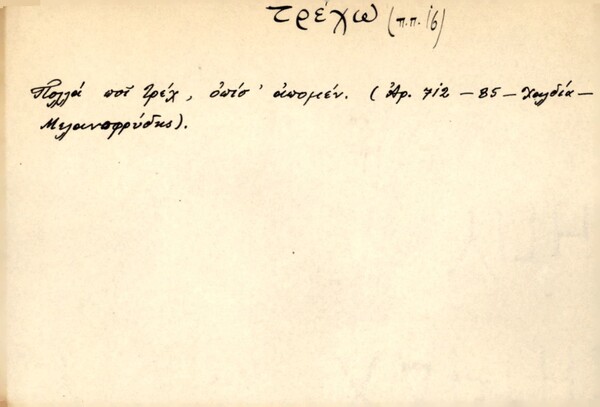 τρέχω (π.π. 16)
Πολλά ποῦ τρέχ, ὀπίσ' ἀπομέν. (Ἀρ. 712 – 85 – Χαλδία –
Μελανοφρύδης).